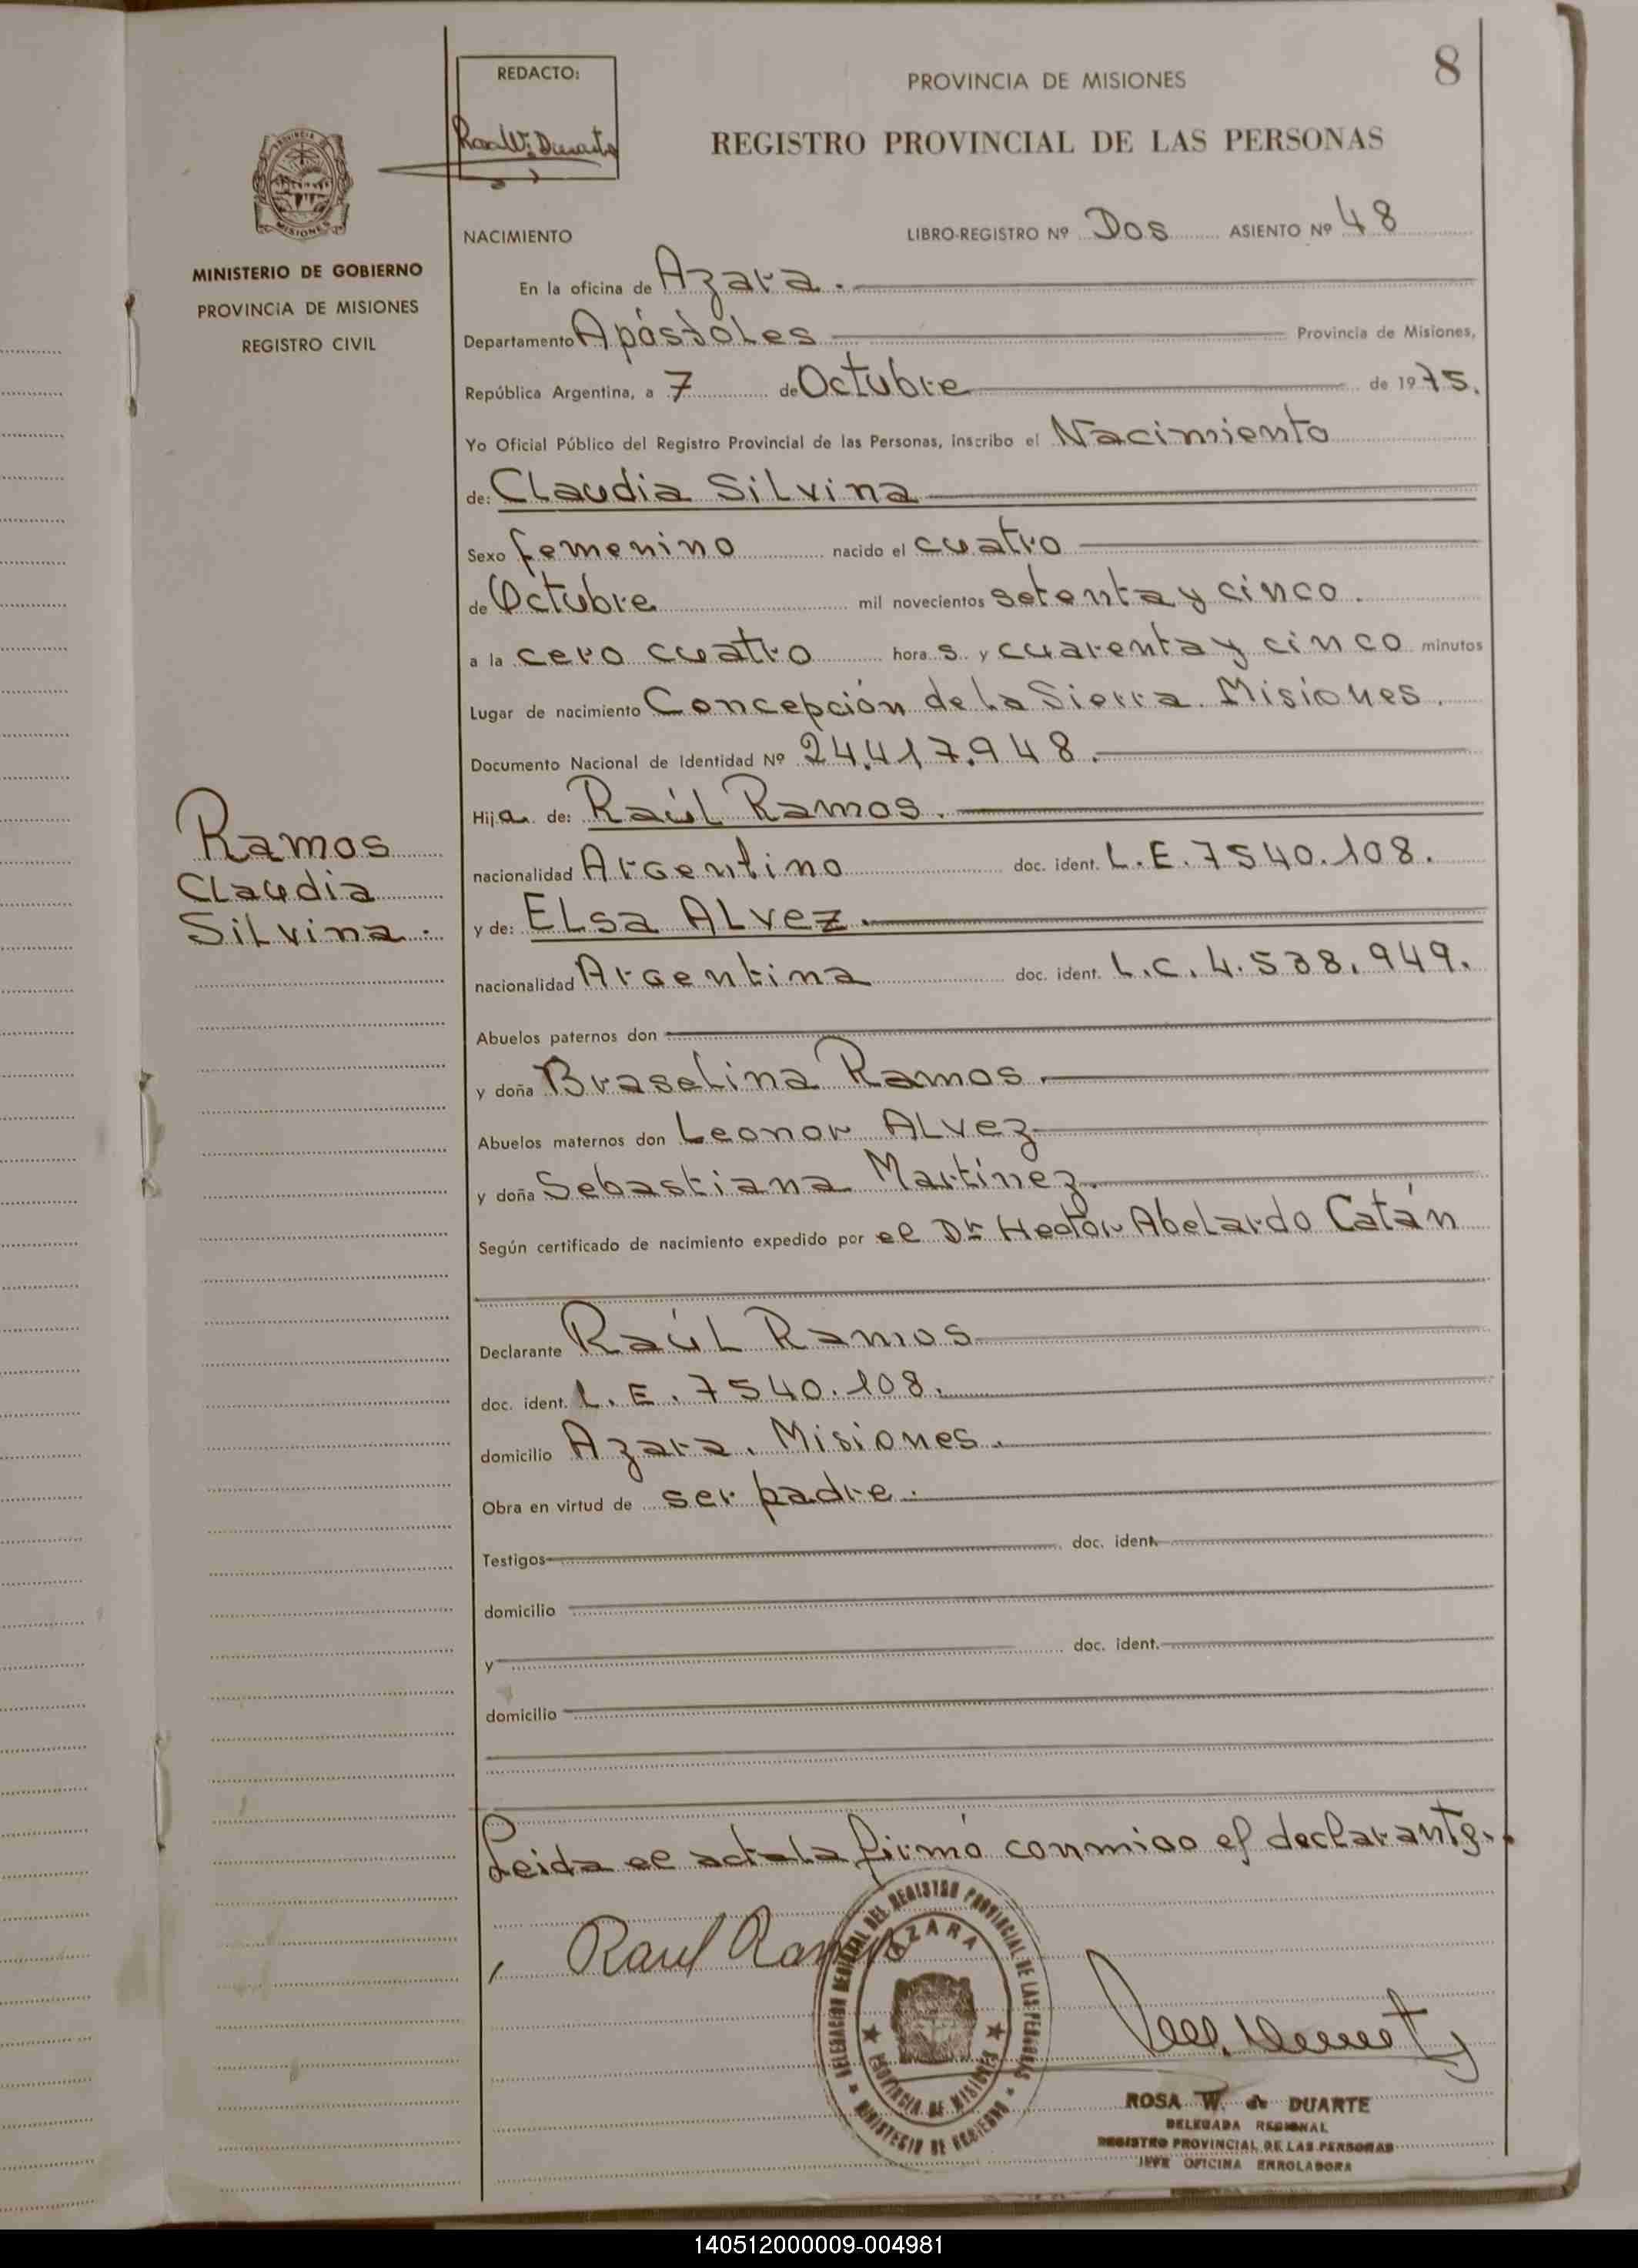 8
REDACTO:
PROVINCIA DE MISIONES
Rosa W. Duarte
REGISTRO PROVINCIAL DE LAS PERSONAS
MISIONES
NACIMIENTO LIBRO-REGISTRO Nº Dos ASIENTO Nº 48
MINISTERIO DE GOBIERNO
PROVINCIA DE MISIONES
REGISTRO CIVIL
En la oficina de Azara.
Departamento Apóstoles Provincia de Misiones,
República Argentina, a 7 de Octubre de 1975.
Yo Oficial Público del Registro Provincial de las Personas, inscribo el Nacimiento
de: Claudia Silvina
Sexo femenino nacido el cuatro
de Octubre mil novecientos setenta y cinco.
a la cero cuatro hora s y cuarenta y cinco minutos
Lugar de nacimiento Concepción de la Sierra. Misiones.
Documento Nacional de Identidad Nº 24.417.948.
Hija de: Raúl Ramos.
Ramos
Claudia
Silvina.
nacionalidad Argentino doc. ident. L.E. 7540.108.
y de: Elsa Alvez.
nacionalidad Argentina doc. ident. L.C. 4.538.949.
Abuelos paternos don
y doña Braselina Ramos.
Abuelos maternos don Leonor Alvez
y doña Sebastiana Martínez.
Según certificado de nacimiento expedido por el Dr Hector Abelardo Catán
Declarante Raúl Ramos
doc. ident. L.E. 7540.108.
domicilio Azara. Misiones.
Obra en virtud de ser padre.
Testigos doc. ident.
domicilio
y doc. ident.
domicilio
Leida el acta la firmó conmigo el declarante.
Raul Ramos
DELEGACION REGIONAL DEL REGISTRO PROVINCIAL DE LAS PERSONAS
AZARA
PROVINCIA DE MISIONES
MINISTERIO DE GOBIERNO
ROSA W. de DUARTE
DELEGADA REGIONAL
REGISTRO PROVINCIAL DE LAS PERSONAS
JEFE OFICINA ENROLADORA
140512000009-004981